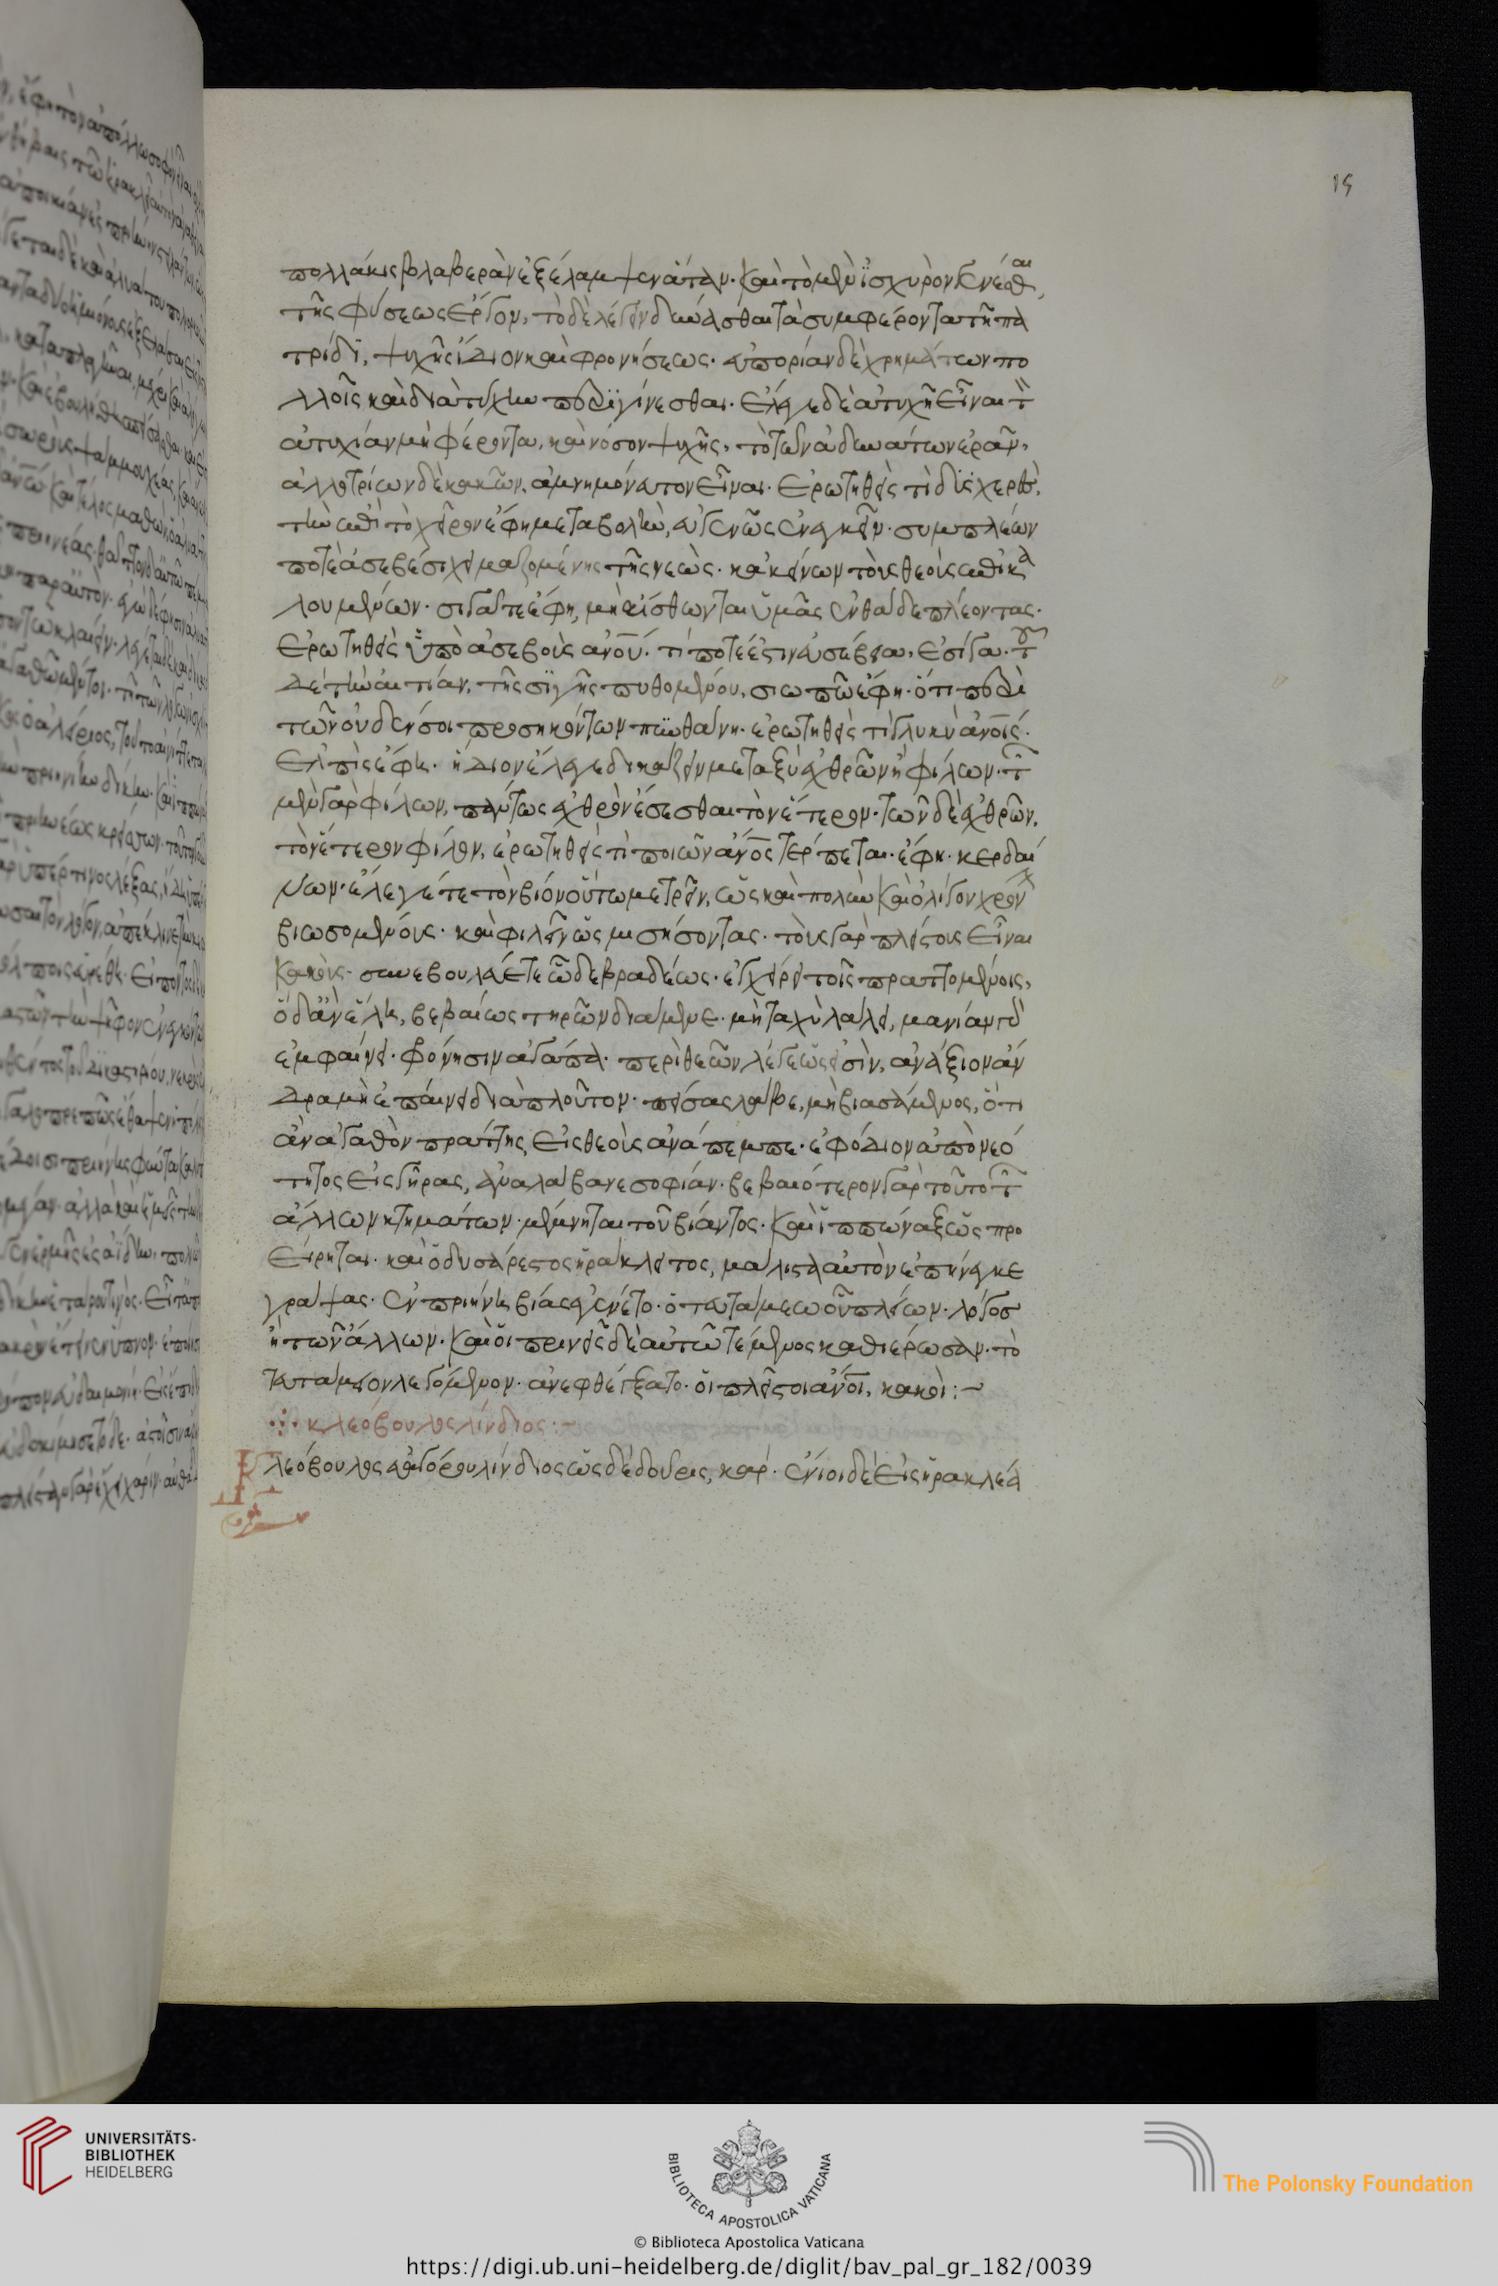 15
πολλάκις βλαβερὰν ἐξέλαμψεν ἄταν· καὶ τὸ μὲν ἰσχυρὸν γενέσθαι
τῆς φύσεως ἔργον, τὸ δὲ λέγειν δύνασθαι τὰ συμφέροντα τῆ πα
τρίδι, ψυχῆς ἴδιον καὶ φρονήσεως· εὐπορίαν δὲ χρημάτων πο
λλοῖς καὶ διὰ τύχην περιγίνεσθαι. ἔλεγε δὲ ἀτυχῆ εἶναι τὸν
ἀτυχίαν μὴ φέροντα, καὶ νόσον ψυχῆς, τὸ τῶν ἀδυνάτων ἐρᾶν,
ἀλλοτρίων δὲ κακῶν, ἀμνημόνευτον εἶναι. ἐρωτηθεὶς τί δυσχερές,
τὴν ἐπὶ τὸ χεῖρον ἔφη μεταβολὴν, εὐγενῶς ἐνεγκεῖν· συμπλέων
ποτὲ ἀσεβέσι χειμαζομένης τῆς νεὼς· κἀκείνων τοὺς θεοὺς ἐπικα
λουμένων· σιγᾶτε ἔφη, μὴ αἴσθωνται ὑμᾶς ἐνθάδε πλέοντας.
ἐρωτηθεὶς ὑπὸ ἀσεβοῦς ἀνου· τί ποτέ ἐστιν εὐσέβεια, ἐσίγα. τοῦ
δὲ τὴν αἰτίαν, τῆς σιγῆς πυθομένου, σιωπῶ ἔφη· ὅτι περὶ
τῶν οὐδέν σοι προσηκόντων πυνθάνη· ἐρωτηθεὶς τί γλυκὺ ἀνοις·
ἐλπὶς ἔφη. ἥδιον ἔλεγε δικάζειν μεταξὺ ἐχθρῶν ἢ φίλων· τῶν
μὲν γὰρ φίλων, πάντως ἐχθρὸν ἔσεσθαι τὸν ἕτερον· τῶν δὲ ἐχθρῶν,
τὸν ἕτερον φίλον, ἐρωτηθεὶς τί ποιῶν ἄνος τέρπεται· ἔφη· κερδαί
νων· ἔλεγέ τε τὸν βίον οὕτω μετρεῖν, ὡς καὶ πολὺν καὶ ὀλίγον χρόνον
βιωσομένους· καὶ φιλεῖν ὡς μισήσοντας· τοὺς γὰρ πλείστους εἶναι
κακούς· συνεβούλευέ τε ὧδε βραδέως· ἐγχείρει τοῖς πραττομένοις,
ὃ δ' ἂν ἕλῃ, βεβαίως τηρῶν διάμενε· μὴ ταχὺ λάλει, μανίαν γὰρ
ἐμφαίνει· φρόνησιν ἀγάπα· περὶ θεῶν λέγε ὡς εἰσὶν, ἀνάξιον ἄν
δρα μὴ ἐπαίνει διὰ πλοῦτον· πείσας λάβε, μὴ βιασάμενος, ὅτι
ἂν ἀγαθὸν πράττης, εἰς θεοὺς ἀνάπεμπε· ἐφόδιον ἀπὸ νεό
τητος εἰς γῆρας, ἀναλάμβανε σοφίαν· βεβαιότερον γὰρ τοῦτο τῶν
ἄλλων κτημάτων· μέμνηται τοῦ βίαντος· καὶ ἱππῶναξ ὡς προ
είρηται· καὶ ὁ δυσάρεστος ἡράκλειτος, μάλιστα αὐτὸν ἐπήνεκε
γράψας· ἐν πριήνη βίας ἐγένετο· ὁ τευτάμεω οὗ πλέων· λόγος
ἢ τῶν ἄλλων· καὶ οἱ πρινεῖς δὲ αὐτῶ τέμενος καθιέρωσαν· τὸ
τευτάμειον λεγόμενον· ἀνεφθέγξατο· οἱ πλεῖστοι ἄνοι, κακοὶ:~
κλεόβουλος λίνδιος:~
Κλεόβουλος εὐαγόρου λίνδιος ὡς δὲ δοῦρις, κάρ· ἔνιοι δὲ εἰς ἡρακλέα
UNIVERSITÄTS-
BIBLIOTHEK
HEIDELBERG
BIBLIOTECA APOSTOLICA VATICANA
The Polonsky Foundation
© Biblioteca Apostolica Vaticana
https://digi.ub.uni-heidelberg.de/diglit/bav_pal_gr_182/0039